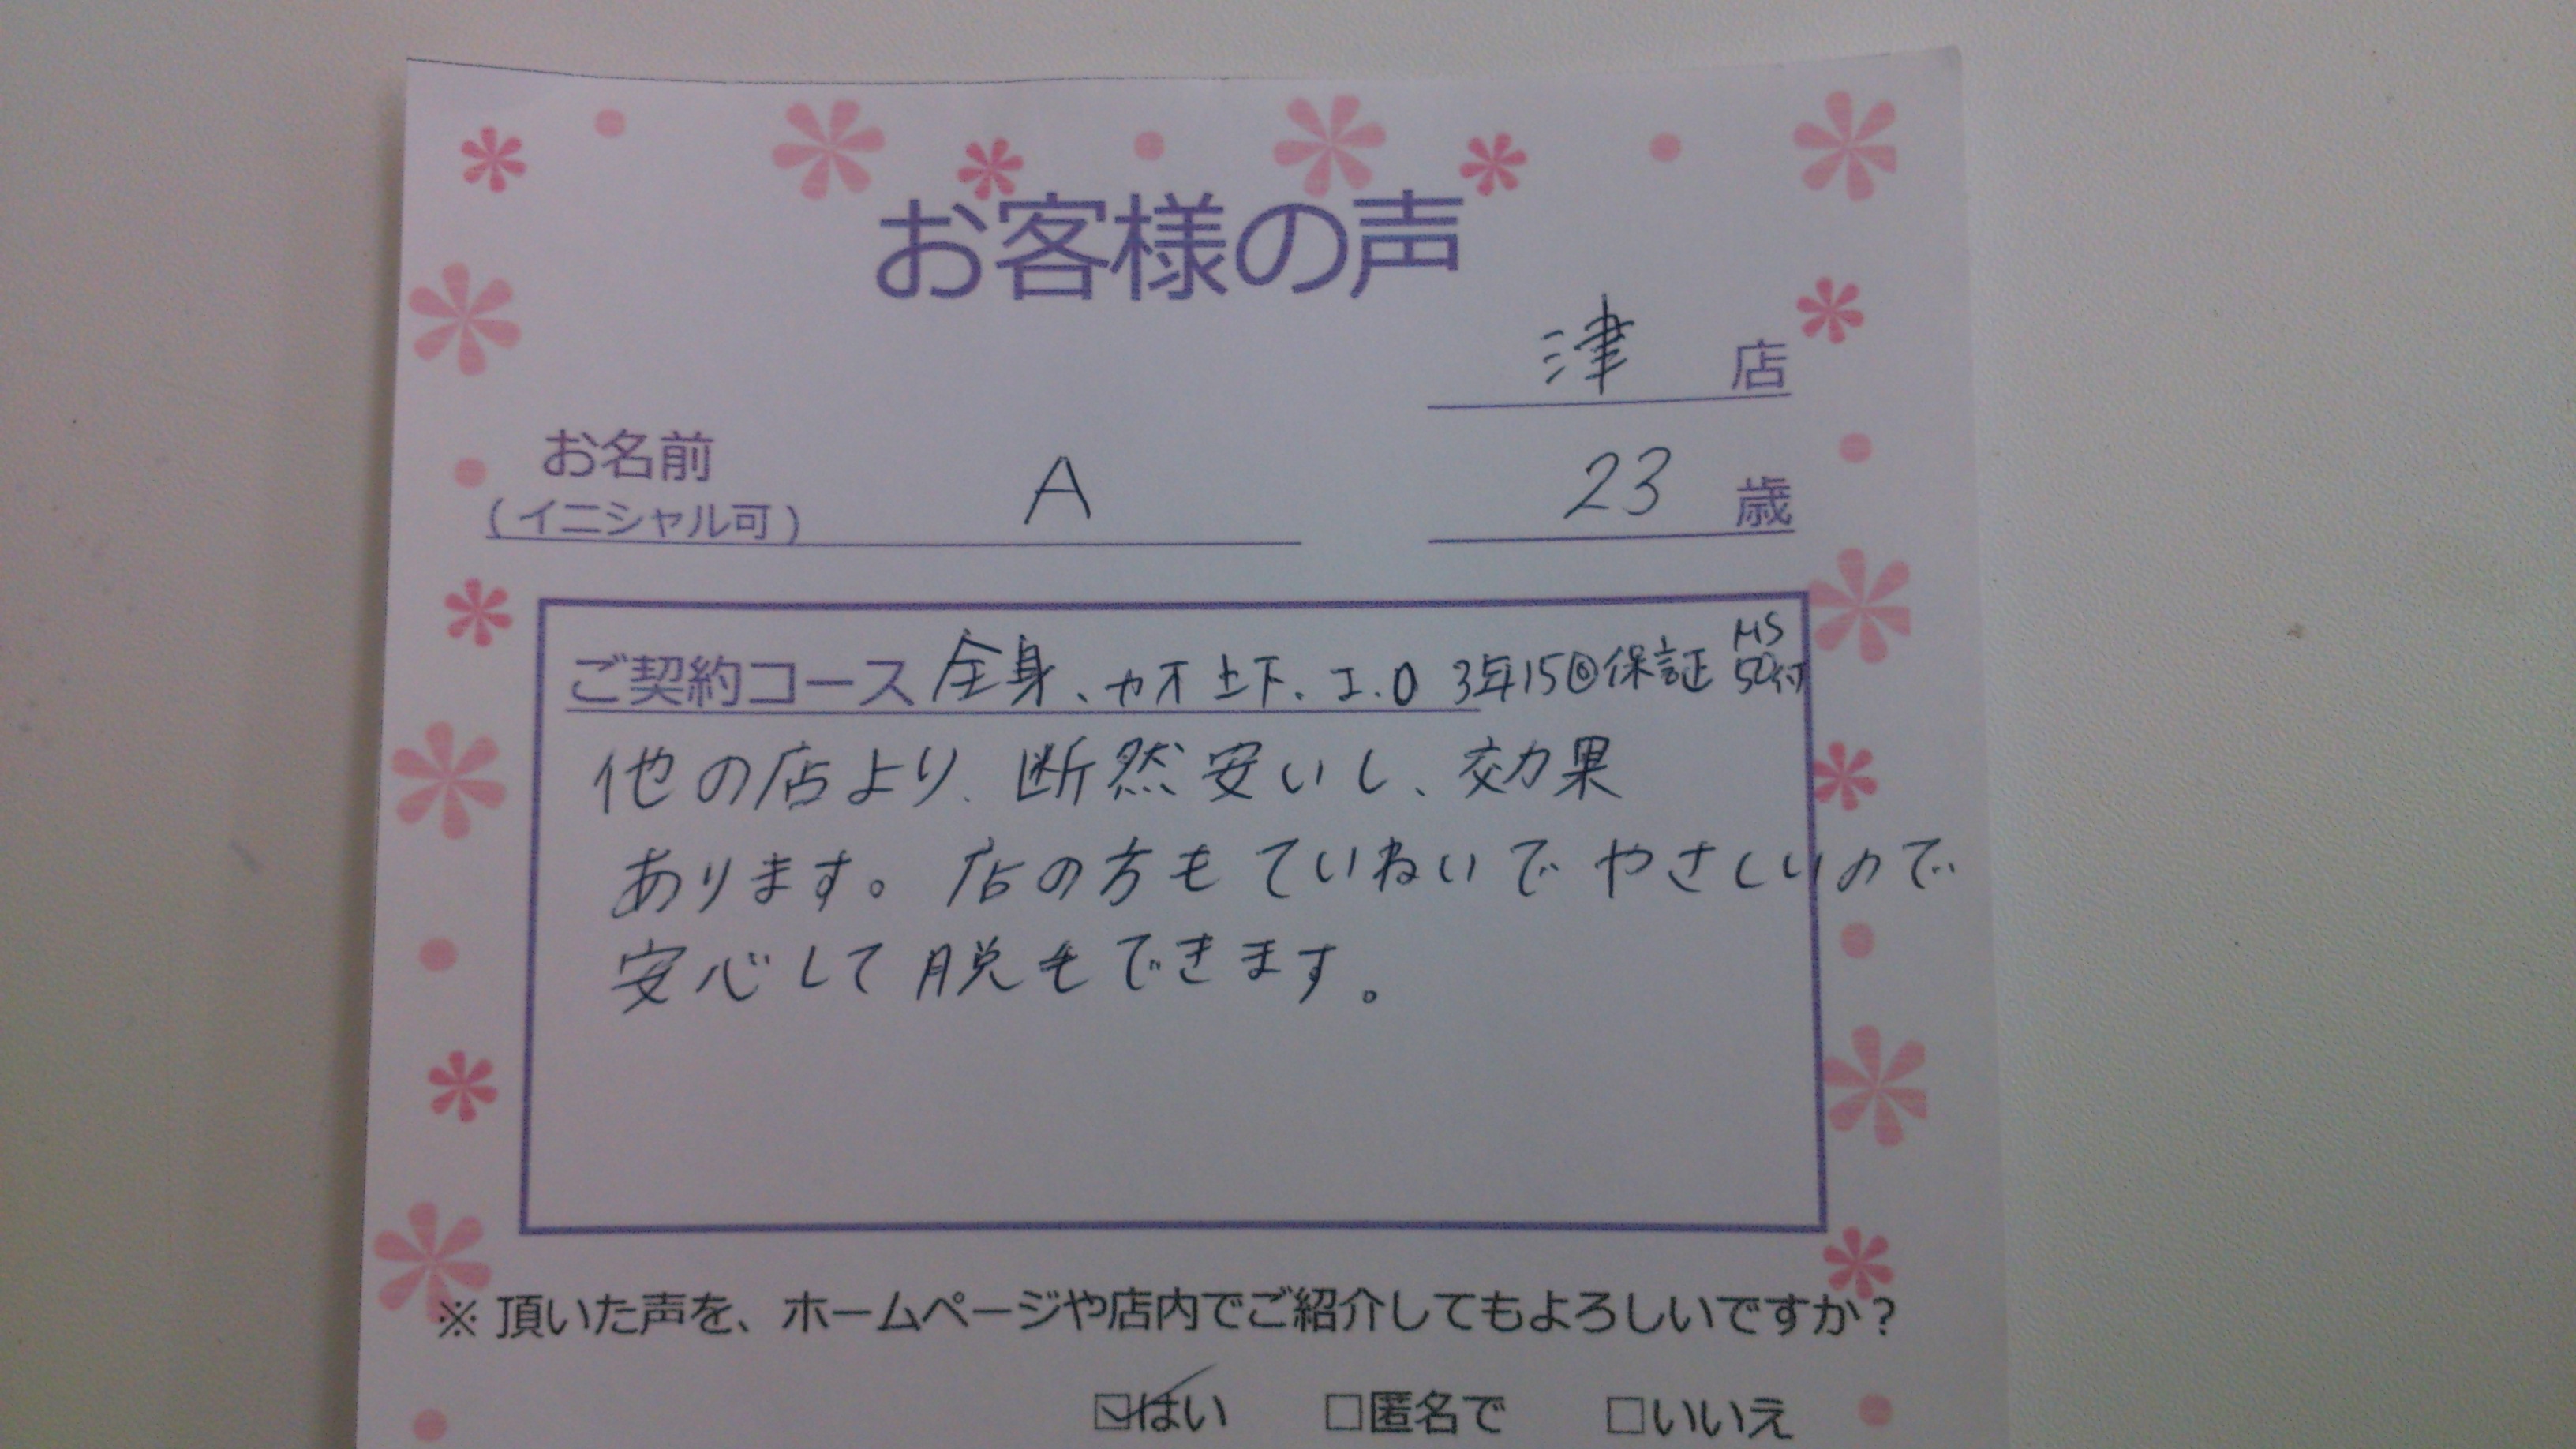 お客様の声
津 店
お名前
(イニシャル可) A 23 歳
ご契約コース 全身、カオ上下、I.O 3年15回保証 MS
他の店より、断然安いし、効果
あります。店の方もていねいでやさしいので
安心して脱毛できます。
※頂いた声を、ホームページや店内でご紹介してもよろしいですか？
☑はい □匿名で □いいえ